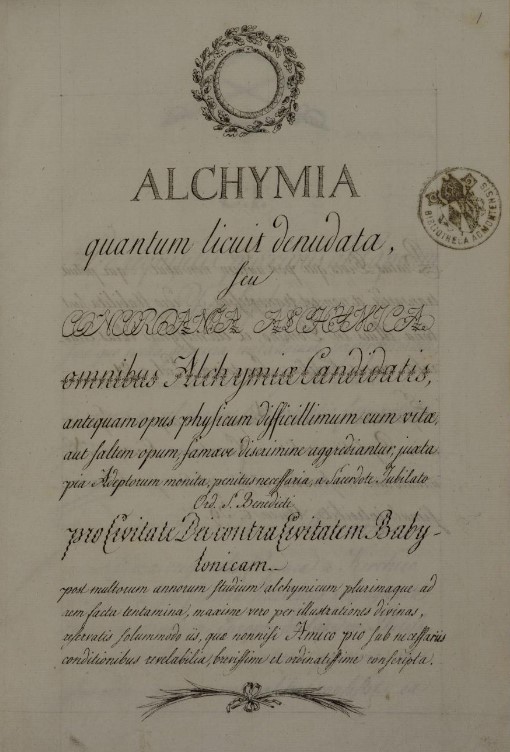 1
ALCHYMIA
quantum licuit denudata,
seu
CONCORDANTIA ALCHYMICA
omnibus Alchymiæ Candidatis,
antequam opus physicum difficillimum cum vitæ,
aut saltem opum, famæve discrimine aggrediantur, juxta
pia Adeptorum monita, penitus necessaria, a Sacerdote Jubilato
Ord. S. Benedicti
pro Civitate Dei contra Civitatem Baby-
lonicam.
post multorum annorum studium alchymicum plurimaque ad
rem facta tentamina, maxime vero per illustrationes divinas,
reservatis solummodo iis, quæ nonnisi Amico pio sub necessariis
conditionibus revelabilia, brevissime et ordinatissime conscripta.
BIBLIOTHECA ADMONTENSIS